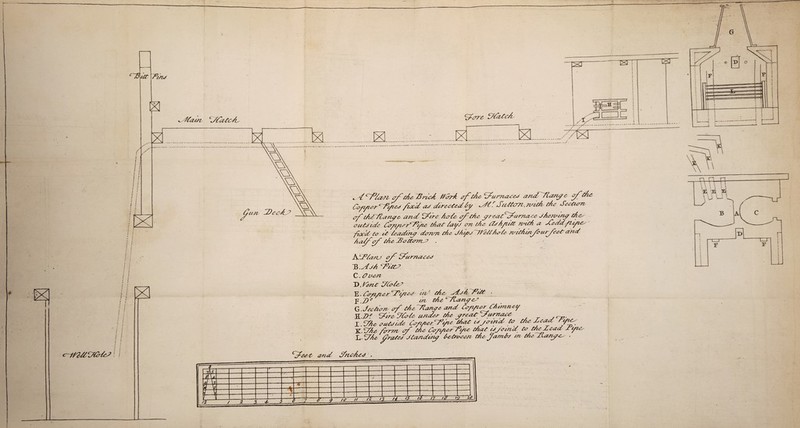 Bitt Pins
Main Hatch
Fore Hatch
Gun Deck
Well Hole
A Plan of the Brick Work of the Furnaces and Range of the
Copper Pipes fixed as directed by Mr. Sutton, with the Section
of the Range and Fire hole of the great Furnace shewing the
outside Copper Pipe that lays on the Ashpitt with a Lead pipe
fix'd to it leading down the Ships Well hole within four feet and
half of the Bottom
A. Plan of Furnaces
B. Ash Pitt
C. Oven
D. Vent Hole
E. Copper Pipes in the Ash Pitt
F. Do. in the Range
G. Section of the Range and Copper Chimney
H. Do. Fire Hole under the great Furnace
I. The outside Copper Pipe that is joind to the Lead Pipe
K. The form of the Copper Pipe that is joind to the Lead Pipe
L. The Grates standing between the Jambs in the Range
Feet and Inches
G
D
F F
L
H
I
K K
K K K
B A C
D
F F
12 1 2 3 4 5 6 7 8 9 10 11 12 13 14 15 16 17 18